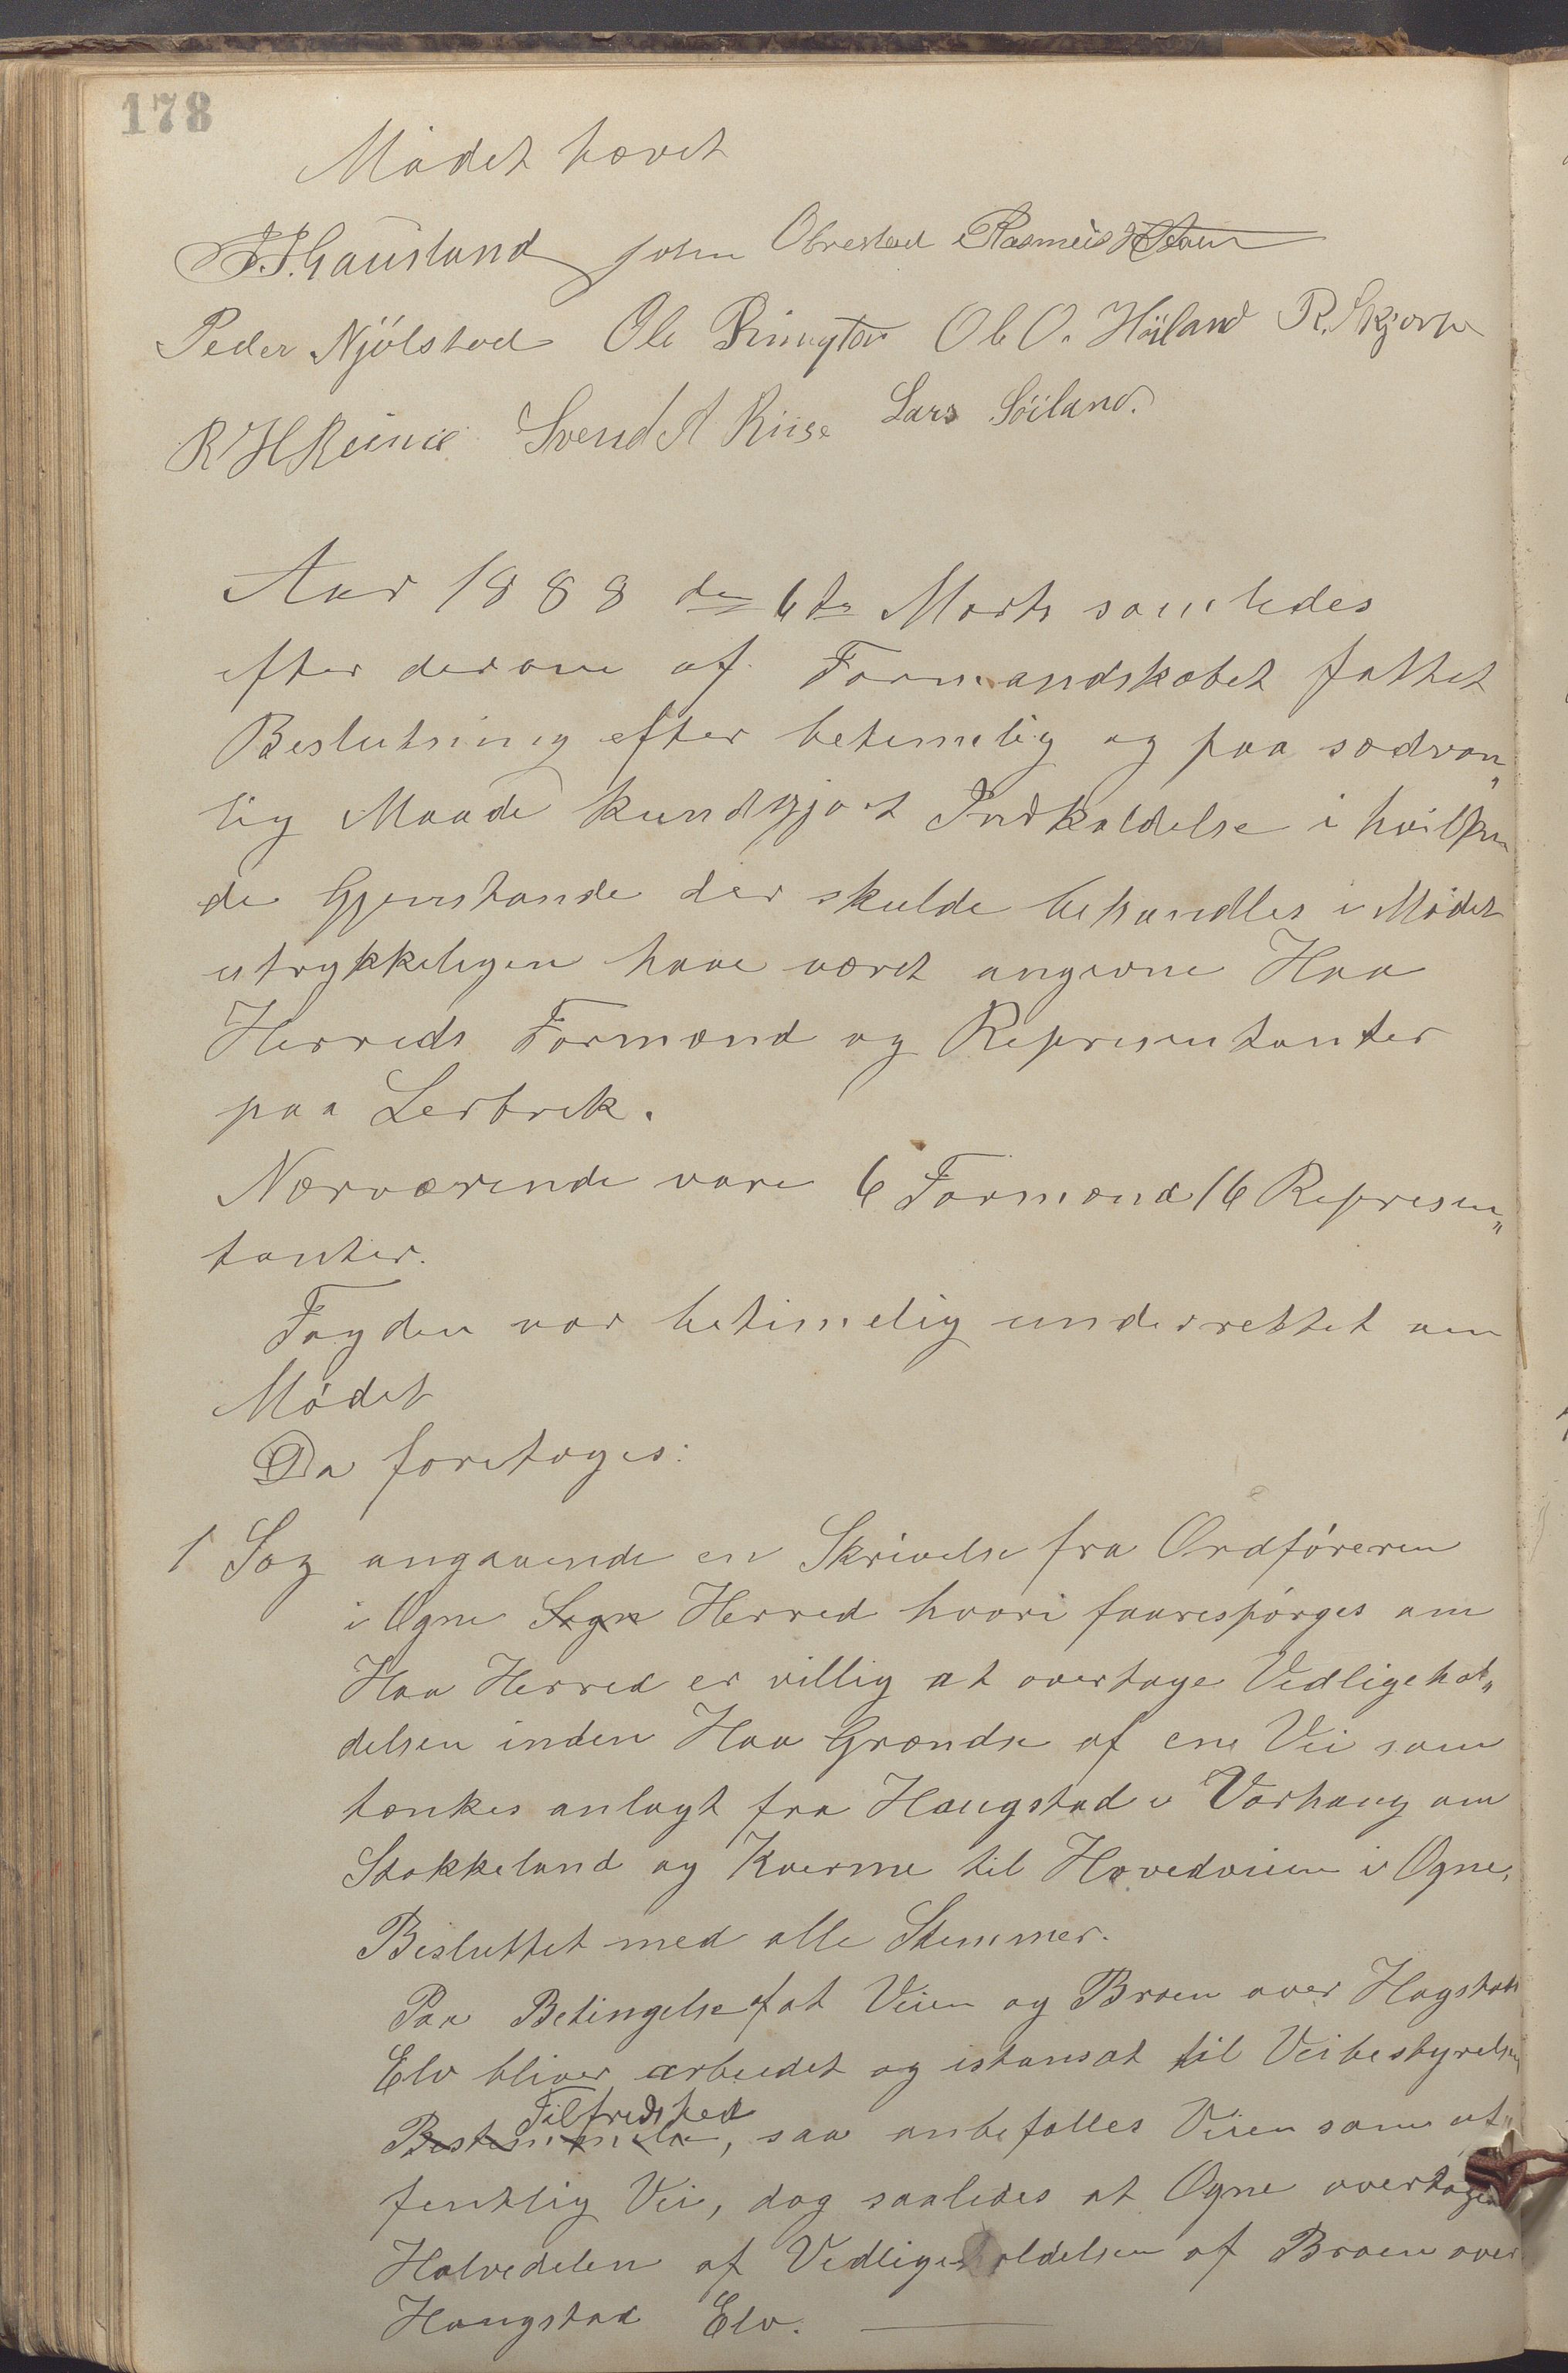 178
Mødet hævet
J. J. Gausland John Obrestad Rasmus
Peder Njølstad Ole Ole O. Höiland R. Skjærpe
R H Reime Svend A Riise Lars Söiland.
Aar 1888 den 6te Marts samledes
efter derom af Formandskabet fattet
Beslutning efter betimelig og paa sædvan„
lig Maade kundgjort Indkaldelse i hvilken
de Gjenstande der skulde behandles i Mødet
utrykkeligen have været angivne Haa
Herreds Formænd og Representanter
paa Lerbrek.
Nærværende vare 6 Formænd 16 Represen„
tanter.
Fogden var betimelig underrettet om
Mødet
Da foretoges:
1 Sag angaaende en Skrivelse fra Ordføreren
i Ogne Sogn Herred hvori faarespørges om
Haa Herred er villig at overtage Vedligehol„
delsen inden Haa Grændse af en Vei som
tænkes anlagt fra Haugstad i Varhaug om
Stokkeland og Kværme til Hovedveien i Ogne.
Besluttet med alle Stemmer.
Paa Betingelse af at Veien og Broen over Hogstad
Elv bliver arbeidet og istansat til Veibestyrelsen
Tilfredshed
, saa anbefalles Veien som of„
fentlig Vei, dog saaledes at Ogne overtager
Halvedelen af Vedligeholdelsen af Broen over
Haugstad Elv.